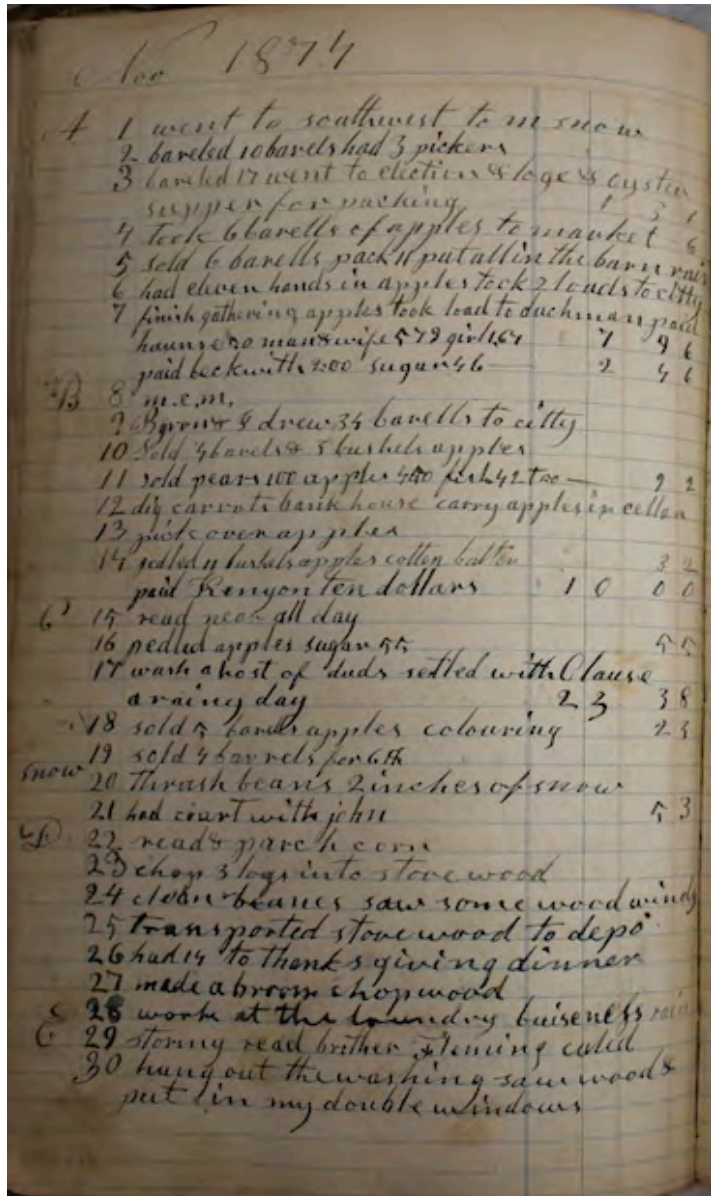 Nov 1874
A 1 went to southwest to m snow
2 bareled 10 barels had 3 pickers
3 bareled 17 went to election & loge & oyster
supper for packing 1 5
4 took 6 barells of apples to market 6
5 sold 6 barells pack 11 put all in the barn rain
6 had eleven hands in apples took 2 loads to citty
7 finish gathering apples took load to duchman paid
man & wife 5 79 girl 1.67 7 9 6
paid beckwith 2.00 sugar 46 2 4 6
B 8 m.e.m.
9 Byron & I drew 34 barells to citty
10 Sold 4 barels & 5 bushels apples
11 sold pears 100 apples 450 fish 42 9 2
12 dig carrots bank house carry apples in celler
13 pick over apples
14 pedled 11 bushels apples cotten batten 3 2
paid Kenyon ten dollars 1 0 0 0
15 read all day
16 pedled apples sugar 55 5 5
17 wash a host of duds setled with Clause
a rainy day 2 3 3 8
18 sold 5 barels apples colouring 2 3
19 sold 4 barrels for 6
snow 20 thrash beans 2 inches of snow
21 had court with john 5 3
D 22 read & parch corn
23 chop 3 logs into stove wood
24 clean beanes saw some wood windy
25 transported stove wood to depo
26 had 14 to thanksgiving dinner
27 made a broom chop wood
28 work at the laundry buiseness rain
E 29 stormy read brither Fleming caled
30 hung out the washing saw wood &
put in my double windows